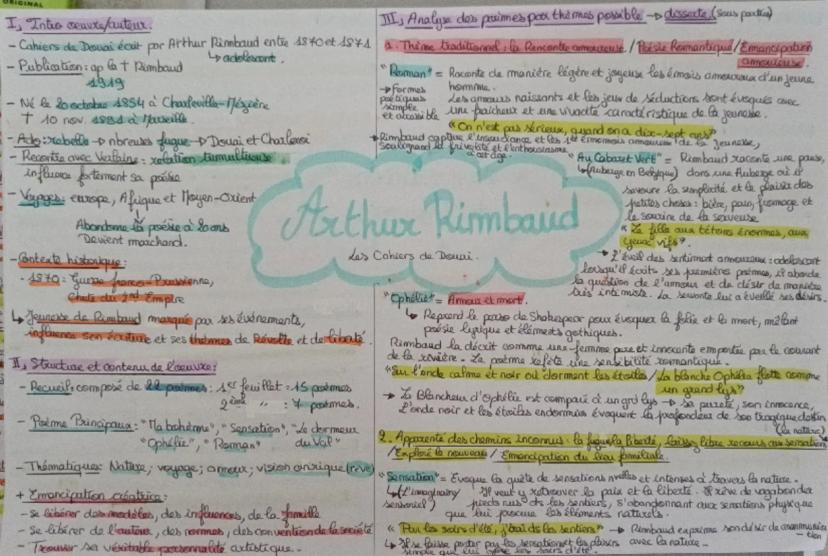 ORIGINAL
I, Intro œuvre/auteur.
- Cahiers de Douai écrit par Arthur Rimbaud entre 1870 et 1871
↳ adolescent.
- Publication : ap la † Rimbaud
1919
- Né le 20 octobre 1854 à Charleville-Mézière
† 10 nov. 1891 à Marseille.
- Ado : rebelle → nbreuses fugue → Douai et Charleroi
- Recontre avec Verlaine : relation tumultueuse
influence fortement sa poésie
- Voyages : europe, Afrique et Moyen-Orient
↓
Abandonne la poésie à 20 ans
Devient marchand.
- Contexte historique :
- 1870 : Guerre franco-Prussienne,
chute du 2nd Empire
↳ Jeunesse de Rimbaud marqué par ses événements,
influence son écriture et ses thèmes de Révolte et de liberté.
II, Structure et contenu de l'œuvre :
- Recueil : composé de 22 poèmes : 1er feuillet = 15 poèmes
2ème " : 7 poèmes.
- Poème Principaux : "Ma bohème", "Sensation", "Le dormeur
"Ophélie", "Roman" du Val"
- Thématiques : Nature, voyage, amour, vision onirique (rêve)
+ Emancipation créatrice :
- se libérer des modèles, des influences, de la famille
- se libérer de l'autre, des normes, des convention de la société
- Trouver sa véritable personnalité artistique.
Arthur Rimbaud
Les Cahiers de Douai.
III, Analyse des poèmes par thèmes possible → disserte (sous parties)
1. Thème traditionnel : la Rencontre amoureuse / Poésie Romantique / Emancipation
amoureuse.
"Roman" = Raconte de manière légère et joyeuse les émois amoureux d'un jeune
homme.
→ Formes
poétiques
simple
et accessible
Les amours naissants et les jeux de séductions sont évoqués avec
une fraîcheur et une vivacité caractéristique de la jeunesse.
"On n'est pas sérieux, quand on a dix-sept ans"
→ Rimbaud capture l'insouciance et les 1er émois amoureux de la jeunesse,
soulignant la frivolité et l'enthousiasme
à cet âge.
"Au Cabaret Vert" = Rimbaud raconte une pause,
↳ (Auberge en Belgique) dans une Auberge où il
savoure la simplicité et le plaisir des
petites choses : bière, pain, fromage et
le sourire de la serveuse
"La fille aux tétons énormes, aux
yeux vifs".
↳ L'éveil des sentiment amoureux : adolescent
lorsqu'il écrit ses premières poèmes, il aborde
la question de l'amour et du désir de manière
très intimiste. La servante lui a éveillé ses désirs.
"Ophélie" = Amour et mort.
↳ Reprend le perso de Shakespear pour évoquer la folie et la mort, mêlant
poésie lyrique et éléments gothiques.
Rimbaud la décrit comme une femme pure et innocente emportée par le courant
de la rivière. Le poème reflète une sensibilité romantique.
"Sur l'onde calme et noir où dorment les étoiles / La blanche Ophélia flotte comme
un grand lys"
→ La Blancheur d'Ophélie est comparé à un grd lys → sa pureté, son innocence,
L'onde noir et les étoiles endormies évoquent la profondeur de son tragique destin
(la nature)
2. Apparente des chemins inconnus : la fugue/la liberté, laissez libre recours aux sensations
/ Exploré le nouveau / Emancipation du lieu familiale.
"Sensation" = Evoque la quête de sensations nvelles et intenses à travers la nature.
↳ (L'imaginaire
sensoriel)
Il veut y retrouver la paix et la liberté. Il rêve de vagabonder
pieds nus ds les sentiers, s'abandonnant aux sensations physique
que lui procure les éléments naturels.
"Par les soirs d'été, j'irai ds les sentiers" → Rimbaud exprime son désir de communica
-tion
avec la nature.
↳ Il se laisse porter par les sensations et les plaisirs
simple que lui offre les soirs d'été.